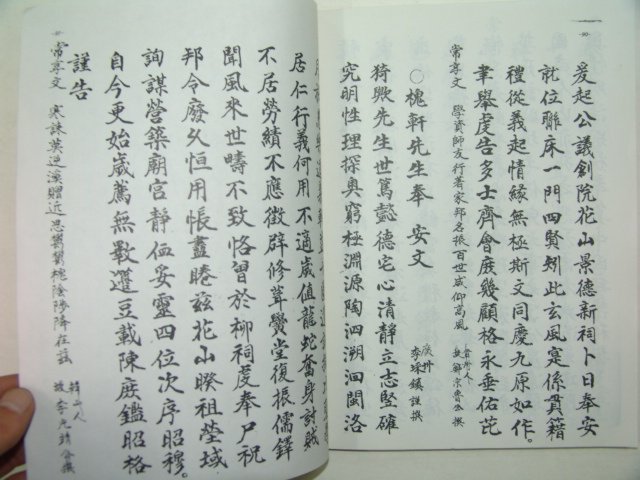 爰起公議創院花山景德新祠卜日奉安
就位聯床一門四賢矧此玄風寔係貫籍
禮從義起情緣無極斯文同慶九原如作
聿舉虔告多士齊會庶幾顧格永垂佑芘
常享文 學資師友行著家邦名振百世咸仰高風
○槐軒先生奉安文
李埰鎭謹撰
猗歟先生世篤懿德宅心清靜立志堅確
究明性理探奧窮極淵源陶泗溯洄閩洛
居仁行義何用不適歲值龍蛇奮身討賊
不居勞績不應徵辟修葺黌堂復振儒鐸
聞風來世疇不致恪曽於柳祠虔奉尸祝
邦令廢久恒用悵盡睠玆花山睽祖塋域
詢謀營築廟宮靜侐妥靈四位次序昭穆
自今更始歲薦無斁籩豆載陳庶鑑昭格
謹告
常享文 寒